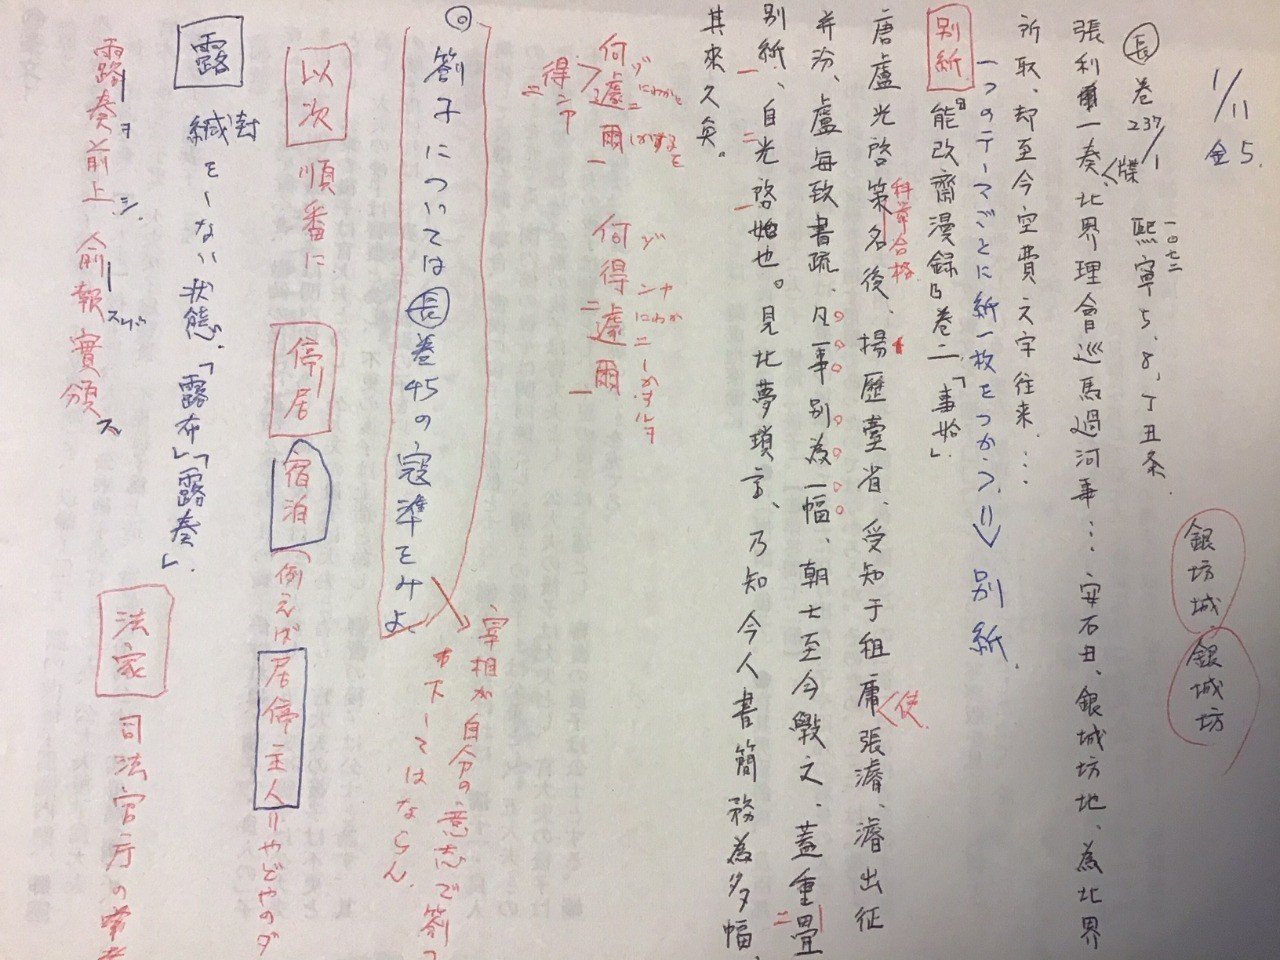 1/11
金5.
銀坊城、銀城坊
長 巻237/1 熙寧5、8、丁丑条.
一〇七二
張利一奏、牒北界理會巡馬過河事…安石曰、銀城坊地、為北界
所取、却至今空費文字往来…
一つのテーマごとに紙一枚をつかう、⇒別紙.
別紙 『能改齋漫録』巻二、「事始」
唐盧光啓策名後、揚歴臺省、受知于租庸張濬、濬出征
科挙合格
使
并汾、盧毎致書疏、凡一事別為一幅、朝士至今斅之、蓋重畳
別紙、自光啓始也。見北夢瑣言、乃知今人書簡務為多幅、
其來久矣。
何遽爾
得
何得遽爾
◎ 劄子については長巻45の寇準をみよ、
宰相が自分の意志で劄
を下してはならん
以次 順番に
停居 宿泊 (例えば居停主人=やどやのダ
露 緘封をーない状態.「露布」「露奏」
露奏前上、俞報實頒
法家 司法官庁の